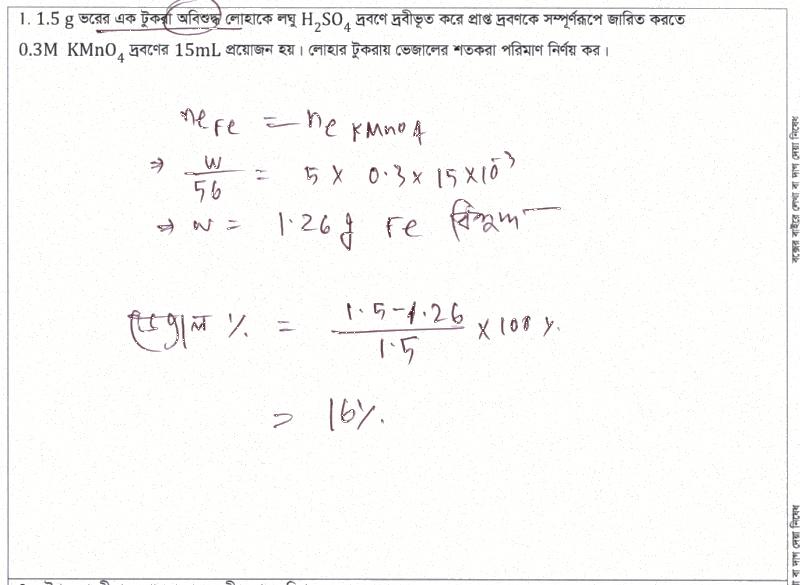 1. 1.5 g ভরের এক টুকরা অবিশুদ্ধ লোহাকে লঘু H₂SO₄ দ্রবণে দ্রবীভূত করে প্রাপ্ত দ্রবণকে সম্পূর্ণরূপে জারিত করতে
0.3M KMnO₄ দ্রবণের 15mL প্রয়োজন হয়। লোহার টুকরায় ভেজালের শতকরা পরিমাণ নির্ণয় কর।
ne Fe = ne KMnO4
⇒ W/56 = 5 × 0.3 × 15 × 10⁻³
⇒ W = 1.26 g Fe বিশুদ্ধ
ভেজাল % = (1.5-1.26)/1.5 × 100 %
= 16%.
বক্সের বাইরে লেখা বা দাগ দেয়া নিষেধ
বা দাগ দেয়া নিষেধ